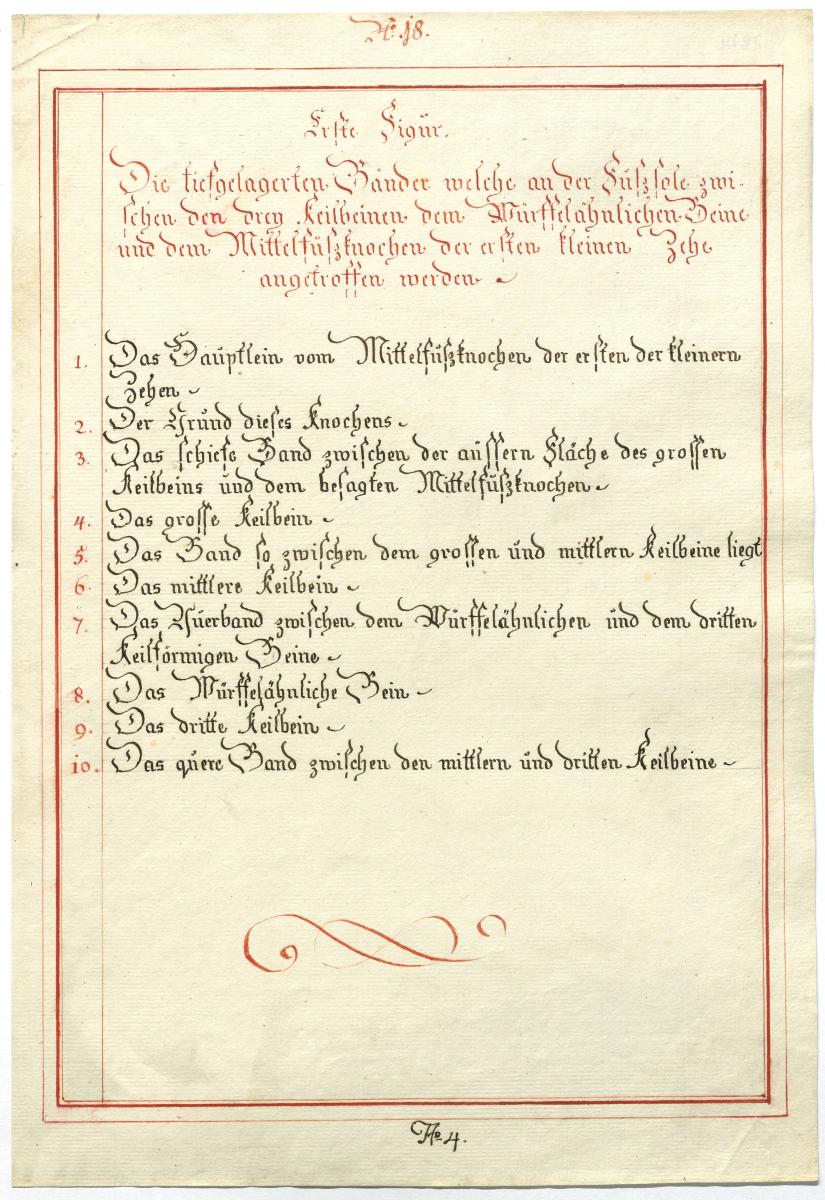 No. 18.
Erste Figur.
Die tiefgelagerten Bänder welche an der Fußsole zwi-
schen den drey Keilbeinen dem Würffelähnlichen Beine
und dem Mittelfußknochen der ersten kleinen Zehe
angetroffen werden
1. Das Häuptlein vom Mittelfußknochen der ersten der kleinern
Zehen
2. Der Grund dieses Knochens
3. Das schiefe Band zwischen der äussern Fläche des grossen
Keilbeins und dem besagten Mittelfußknochen
4. Das grosse Keilbein
5. Das Band so zwischen dem grossen und mittlern Keilbeine liegt
6. Das mittlere Keilbein
7. Das Querband zwischen dem Würffelähnlichen und dem dritten
Keilförmigen Beine
8. Das Würffelähnliche Bein
9. Das dritte Keilbein
10. Das quere Band zwischen den mittlern und dritten Keilbeine
No 4.